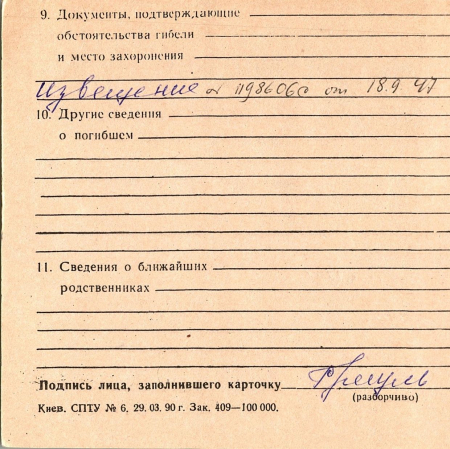 9. Документы, подтверждающие
обстоятельства гибели
и место захоронения
Извещение № 1198606с от 18.9.47
10. Другие сведения
о погибшем
11. Сведения о ближайших
родственниках
Подпись лица, заполнившего карточку
(разборчиво)
Киев. СПТУ № 6. 29. 03. 90 г. Зак. 409—100 000.